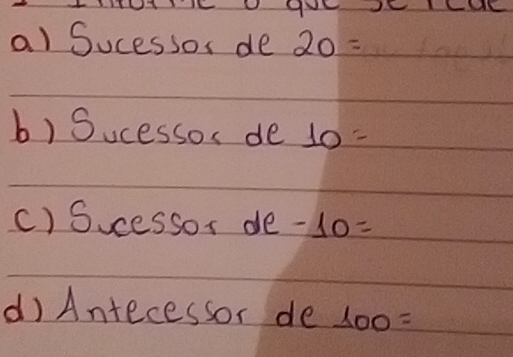 o que se pede
a) Sucessor de 20=
b) Sucessor de 10=
c) Sucessor de -10=
d) Antecessor de 100=